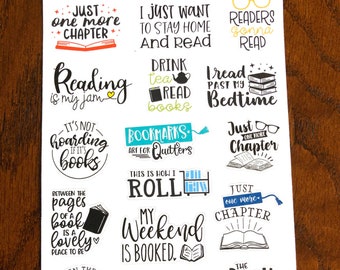 JUST
one more
CHAPTER
I JUST WANT
TO STAY HOME
AND READ
READERS
gonna
READ
Reading
is my jam
DRINK
tea
READ
books
I read
PAST MY
Bedtime
IT'S NOT
hoarding
IF it's
BOOKS
BOOKMARKS
ARE FOR Quitters
Just
ONE MORE
Chapter
BETWEEN THE
pages
OF A
book
IS A
lovely
PLACE TO BE
THIS IS HOW I
ROLL
MY
Weekend
IS BOOKED.
JUST
one more
CHAPTER